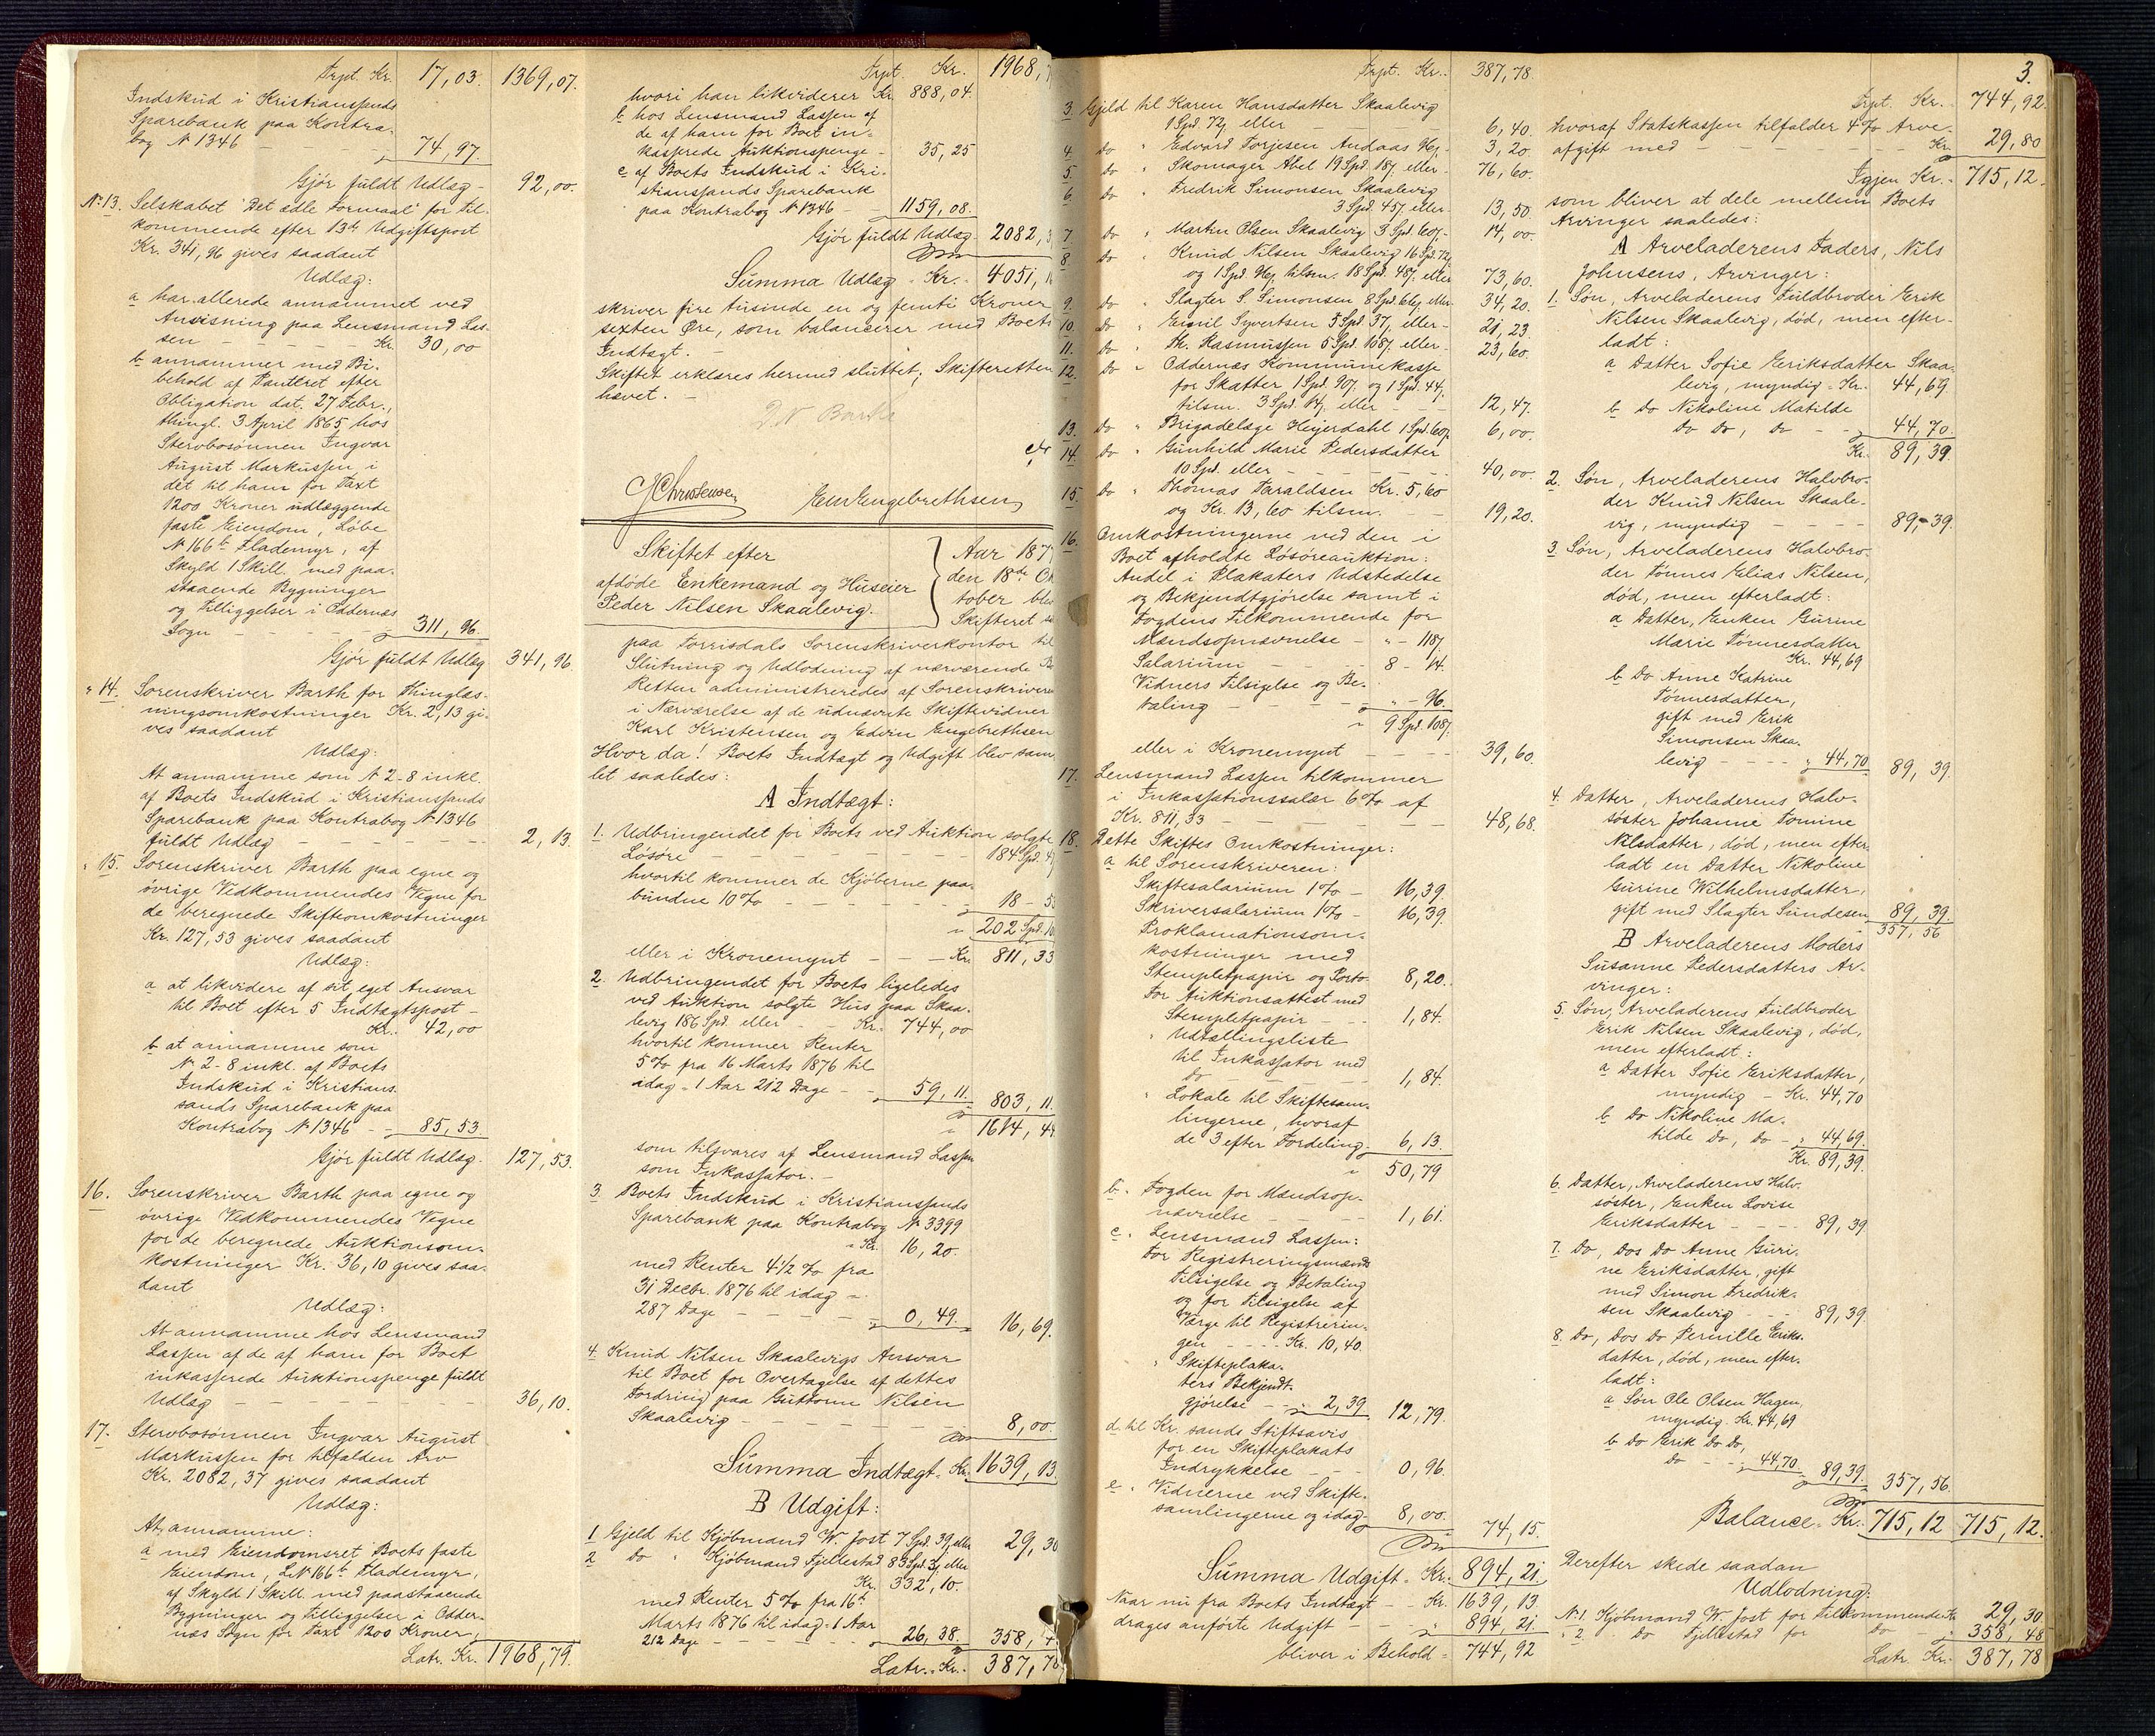 Trpt. Kr. 17,03. 1369,07.
Indskud i Kristianssands
Sparebank paa Kontra-
bog N 1346 - - " 74,97.
Gjør fuldt Udlæg - 92,00.
N. 13. Selskabet "Det ædle Formaal" for til-
kommende efter 13de Udgiftspost
Kr. 341,96 gives saadant
Udlæg:
a har allerede annammet ved
Anvisning paa Lensmand Las-
sen - - - - Kr. 30,00
b annammer med Bi-
behold af Panteret efter
Obligation dat. 27 Febr.,
thingl. 3 April 1865, hos
Stervbosønnen Ingvar
August Markussen, i
det til ham for Taxt
1200 Kroner udlæggende
faste Eiendom, Løbe
N 166b Flademyr, af
Skyld 1 Skill. med paa-
staaende Bygninger
og Tilliggelser i Oddernæs
Sogn - - - - " 311,96.
Gjør fuldt Udlæg 341,96.
" 14. Sorenskriver Barth for Thinglæs-
ningsomkostninger Kr. 2,13 gi-
ves saadant
Udlæg:
At annamme som N 2-8 inkl.
af Boets Indskud i Kristianssands
Sparebank paa Kontrabog N 1346
fuldt Udlæg - - - - - - 2,13.
" 15. Sorenskriver Barth paa egne og
øvrige Vedkommendes Vegne for
de beregnede Skifteomkostninger
Kr. 127,53 gives saadant
Udlæg:
a at likvidere af sit eget Ansvar
til Boet efter 5 Indtægtspost -
Kr. 42,00
b at annamme som
N. 2-8 inkl. af Boets
Indskud i Kristians-
sands Sparebank paa
Kontrabog N 1346 - - 85,53
Gjør fuldt Udlæg. 127,53.
16. Sorenskriver Barth paa egne og
øvrige Vedkommendes Vegne
for de beregnede Auktionsom-
kostninger Kr. 36,10 gives saa-
dant
Udlæg:
At annamme hos Lensmand
Lassen af de af ham for Boet
inkasserede Auktionspenge fuldt
Udlæg - - - - - - 36,10.
17. Stervbosønnen Ingvar August
Markussen for tilfalden Arv
Kr. 2082,37 gives saadant
Udlæg:
At annamme:
a med Eiendomsret Boets faste
Eiendom, L.N 166b Flademyr,
af Skyld 1 Skill. med paastaaende
Bygninger og Tilliggelser i Odder-
næs Sogn for Taxt 1200 Kroner,
Latr. Kr. 1968,79.
Trpt. Kr. 1968,
hvori han likviderer Kr. 888,04.
b hos Lensmand Lassen af
de af ham for Boet in-
kasserede Auktionspenge - 35,25
c af Boets Indskud i Kri-
stianssands Sparebank
paa Kontrabog N 1346 - - 1159,08.
Gjør fuldt Udlæg 2082,
Summa Udlæg Kr. 4051,
skriver fire tusinde en og femti Kroner
sexten Øre, som balancerer med Boets
Indtægt. -
Skiftet erklæres hermed sluttet; Skifteretten
hævet. -
D N Barth
J Christensen Edv Engebrethsen
Skiftet efter
afdøde Enkemand og Huseier
Peder Nilsen Skaalevig.
Aar 187
den 18de Ok
tober blev
Skifteret
paa Torrisdals Sorenskriverkontor til
Slutning og Udlodning af nærværende
Retten administreredes af Sorenskriveren
i Nærværelse af de udnævnte Skiftevidner
Karl Kristensen og Edvin Engebrethsen
Hvor da! Boets Indtægt og Udgift blev sam
let saaledes:
A Indtægt:
1. Udbringendet for Boets ved Auktion solgte
Løsøre - - - - - - 184 Spd.
hvortil kommer de Kjøberne paa-
bundne 10% - - - - - " 18 -
" 202 Spd.
eller i Kronemynt - - - Kr. 811,33
2. Udbringendet for Boets ligeledes
ved Auktion solgte Hus paa Skaa-
levig 186 Spd. eller - - Kr. 744,00
hvortil kommer Renter
5% fra 16 Marts 1876 til
idag = 1 Aar 212 Dage - - " 59,11. 803,11.
" 1614,44
som tilsvares af Lensmand Lassen
som Inkassator. -
3. Boets Indskud i Kristianssands
Sparebank paa Kontrabog N 3399
- Kr. 16,20.
med Renter 4 1/2 % fra
31 Decbr. 1876 til idag =
287 Dage - - - - " 0,49. 16,69.
4. Knud Nilsen Skaalevigs Ansvar
til Boet for Overtagelse af dettes
Fordring paa Guttorm Nilsen
Skaalevig - - - - - - 8,00.
Summa Indtægt Kr. 1639,13.
B Udgift:
1 Gjeld til Kjøbmand W. Jost 7 Spd. 39 eller 29,30
2 Do " Kjøbmand Fjellestad 83 Spd. 3 eller
Kr. 332,10.
med Renter 5% fra 16de
Marts 1876 til idag = 1 Aar
212 Dage - - - - " 26,38. 358,4
Latr. Kr. 387,78
Trpt. Kr. 387,78.
3. Gjeld til Karen Hansdatter Skaalevig
1 Spd 72 eller - - - - 6,40.
4. do " Edvard Torjesen Andaas 96 - 3,20.
5. do " Skomager Abel 19 Spd. 18 eller - 76,60.
6. do " Fredrik Simonsen Skaalevig
3 Spd. 45 eller 13,50.
7. do " Martin Olsen Skaalevig 3 Spd. 60 - 14,00.
8. do " Knud Nilsen Skaalevig 16 Spd. 72
og 1 Spd. 96 tilsm. 18 Spd. 48 eller 73,60.
9. do " Slagter S. Simonsen 8 Spd. 66 eller 34,20.
10. do " Emil Syvertsen 5 Spd. 37 eller - 21,23
11. do " Th. Rasmussen 5 Spd. 108 eller - 23,60.
12. do " Oddernæs Kommunekasse
for Skatter 1 Spd. 90 og 1 Spd. 44
tilsm. 3 Spd. 14 eller - - 12,47.
13. do " Brigadelæge Heyerdahl 1 Spd. 60 6,00.
14. do " Gunhild Marie Pedersdatter
10 Spd. eller - - - - 40,00.
15. do " Thomas Taraldsen Kr. 5,60
og Kr. 13,60 tilsm. - - 19,20.
16. Omkostningerne ved den i
Boet afholdte Løsøreauktion:
Andel i Plakaters Udstedelse
og Bekjendtgjørelse samt i
Fogdens Tilkommende for
Mændsopnævnelse - " - 118
Salarium - - - 8 - 14.
Vidners Tilsigelse og Be-
taling - - - - " - 96.
" 9 Spd. 108
eller i Kronemynt - - - - 39,60.
17. Lensmand Lassen tilkommer
i Inkassationssalær 6% af
Kr. 811,33 - - - - - - 48,68.
18. Dette Skiftes Omkostninger:
a til Sorenskriveren:
Skiftesalarium 1% - 16,39.
Skriversalarium 1% - 16,39.
Proklamationsom-
kostninger med
Stempletpapir og Porto 8,20.
For Auktionsattest med
Stempletpapir - - - 1,84.
" Udtællingsliste
til Inkassator med
do - - - - 1,84.
" Lokale til Skiftesam-
lingerne, hvoraf
de 3 efter Fordeling - 6,13.
" 50,79
b. Fogden for Mændsop-
nævnelse - - - 1,61.
c. Lensmand Lassen:
For Registreringsmænds
Tilsigelse og Betaling
og for Tilsigelse af
Værge til Registrerin-
gen - - - - Kr. 10,40.
" Skifteplaka-
ters Bekjendt-
gjørelse - - " 2,39. 12,79.
d. til Kr.sands Stiftsavis
for en Skifteplakats
Indrykkelse - - - 0,96.
e. Vidnerne ved Skifte-
samlingerne og idag - 8,00.
" 74,15.
Summa Udgift. Kr. 894,21.
Naar nu fra Boets Indtægt - - Kr. 1639,13.
drages anførte Udgift - - - " 894,21.
bliver i Behold = 744,92
3.
Trpt. Kr. 744,92.
hvoraf Statskassen tilfalder 4% Arve-
afgift med - - - - - - Kr. 29,80
Igjen Kr. 715,12.
som bliver at dele mellem Boets
Arvinger saaledes:
A Arveladerens Faders, Nils
Johnsens, Arvinger:
1. Søn, Arveladerens Fuldbroder Erik
Nilsen Skaalevig, død, men efter-
ladt:
a Datter Sofie Eriksdatter Skaa-
levig, myndig - Kr. 44,69.
b Do Nikoline Matilde
do do, do - - " 44,70.
Kr. 89,39.
2. Søn, Arveladerens Halvbro-
der Knud Nilsen Skaale-
vig, myndig - - - - 89,39.
3. Søn, Arveladerens Halvbro-
der Tønnes Elias Nilsen,
død, men efterladt:
a Datter, Enken Gurine
Marie Tønnesdatter
Kr. 44,69
b Do Anne Katrine
Tønnesdatter,
gift med Erik
Simonsen Skaa-
levig - - - - " 44,70 89,39.
4. Datter, Arveladerens Halv-
søster Johanne Tomine
Nilsdatter, død, men efter-
ladt en Datter Nikoline
Gurine Wilhelmsdatter,
gift med Slagter Sundesen 89,39.
357,56
B Arveladerens Moders
Susanne Pedersdatters Ar-
vinger:
5. Søn, Arveladerens Fuldbroder
Erik Nilsen Skaalevig, død,
men efterladt:
a Datter Sofie Eriksdatter,
myndig - Kr. 44,70
b Do Nikoline Ma-
tilde do, do - " 44,69.
Kr. 89,39.
6. Datter, Arveladerens Halv-
søster, Enken Lovise
Eriksdatter - - - - 89,39
7. Do, Dos Do Anne Guri-
ne Eriksdatter, gift
med Simon Fredrik-
sen Skaalevig - - 89,39.
8. Do, Dos Do Pernille Eriks-
datter, død, men efter-
ladt:
a Søn Ole Olsen Hagen,
myndig. Kr. 44,69
b Do Erik Do Do,
do - - " 44,70. 89,39. 357,56.
Balance Kr. 715,12 715,12.
Derefter skede saadan
Udlodning:
N. 1. Kjøbmand W. Jost for Tilkommende Kr. 29,30
" 2. Do Fjellestad for Do - " 358,48
Latr. Kr. 387,78